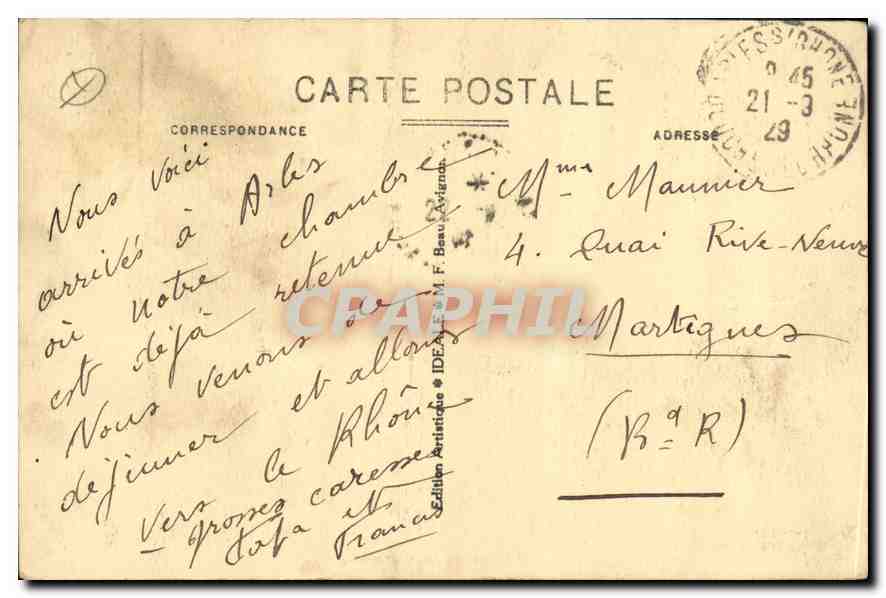 CARTE POSTALE
CORRESPONDANCE
ADRESSE
Nous voici
arrivés à Arles
où notre chambre
est déjà retenue
Nous venons de
déjeuner et allons
vers le Rhône
grosses caresses
Tata et
Francis
Edition Artistique * IDEALE * M. F. Beau, Avignon
Mme Maunier
4. Quai Rive-Neuve
Martigues
(Bd R)
S/RHONE
8 45
21 - 9
29
CPAPHIL